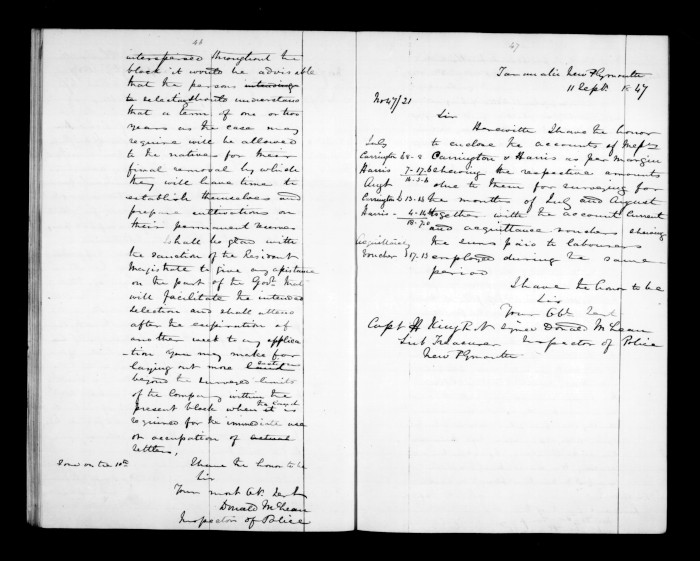 46
interspersed throughout the
block it would be advisable
that the persons intending
to select should understand
that a term of one or two
years as the case may
require will be allowed
to the natives for their
final removal by which
they will have time to
establish themselves and
prepare cultivations on
their permanent reserves
I shall be glad with
the sanction of the Resident
Magistrate to give any assistance
on the part of the Govt that
will facilitate the intended
selection and shall attend
after the expiration of
another week to any applica
-tion you may make for
laying out more
beyond the surveyed limits
of the Company within the
present block when the land is
required for the immediate use
or occupation of actual
settlers,
I have the honor to be
Sir
Your most Obt Servt
Donald McLean
Inspector of Police
47
Taranaki New Plymouth
11 Septr 1847
No 47/21
Sir
Herewith I have the honor
to enclose the accounts of Messrs
Carrington & Harris as per margin
shewing the respective amounts
due to them for surveying for
the months of July and August
together with the account current
and acquittance vouchers shewing
the sums paid to labourers
employed during the same
period
July
Carrington
Harris
Augt
Carrington
Harris
Acquittance
Voucher
I have the honor to be
Sir
Your Obt Servt
signed Donald McLean
Inspector of Police
Capt H King R.N
Sub Treasurer
New Plymouth